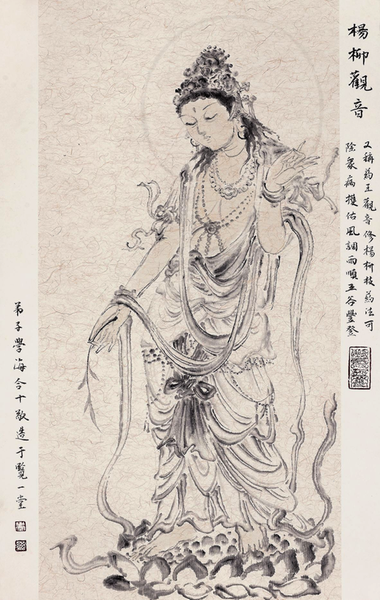 楊柳觀音
又稱藥王觀音修楊柳枝藥法可
除衆病擭佑風調雨順五谷豐登
弟子學海合十敬造于覽一堂